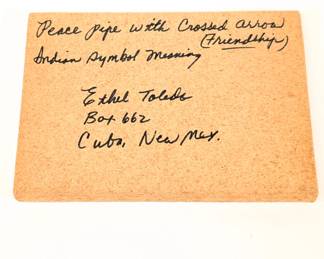 Peace Pipe with Crossed Arrow
(Friendship)
Indian Symbol Meaning
Ethel Toledo
Box 662
Cuba, New Mex.